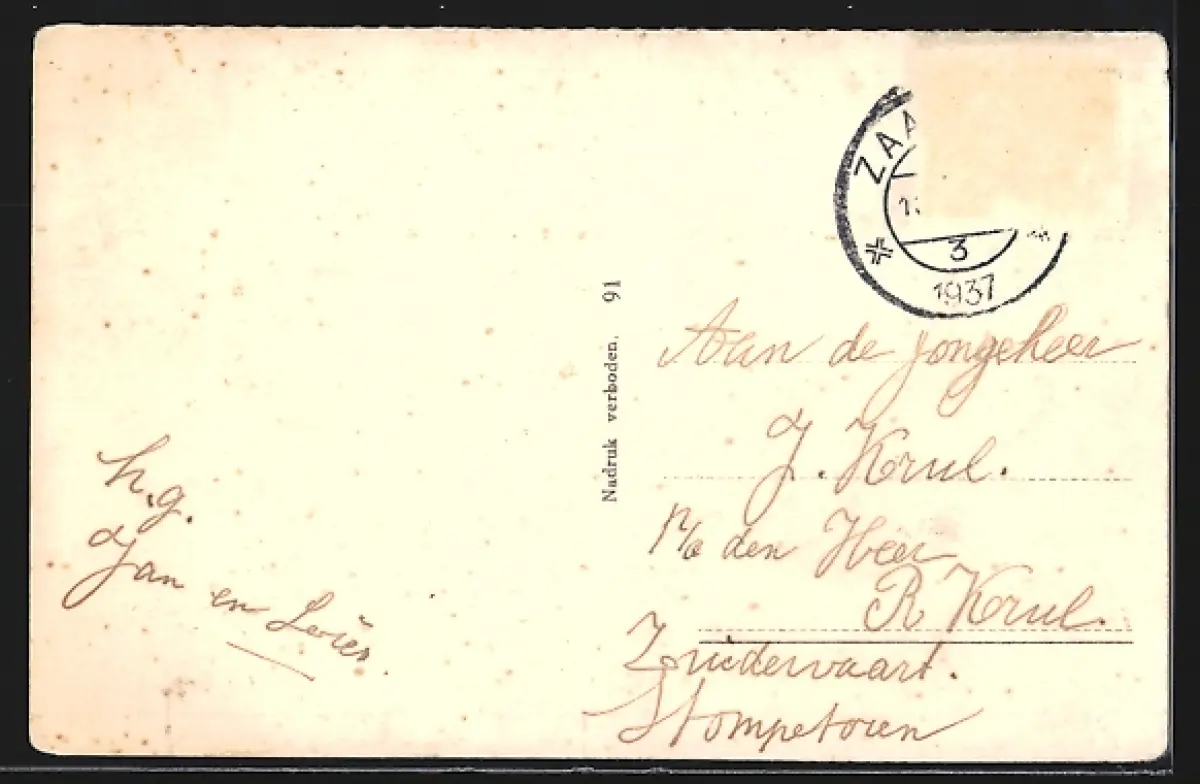 ZAA
3
1937
Nadruk verboden. 91
Aan de jongeheer
J. Krul.
p/a den Heer
R Krul.
Zuidervaart.
Stompetoren
h.g.
Jan en Loies